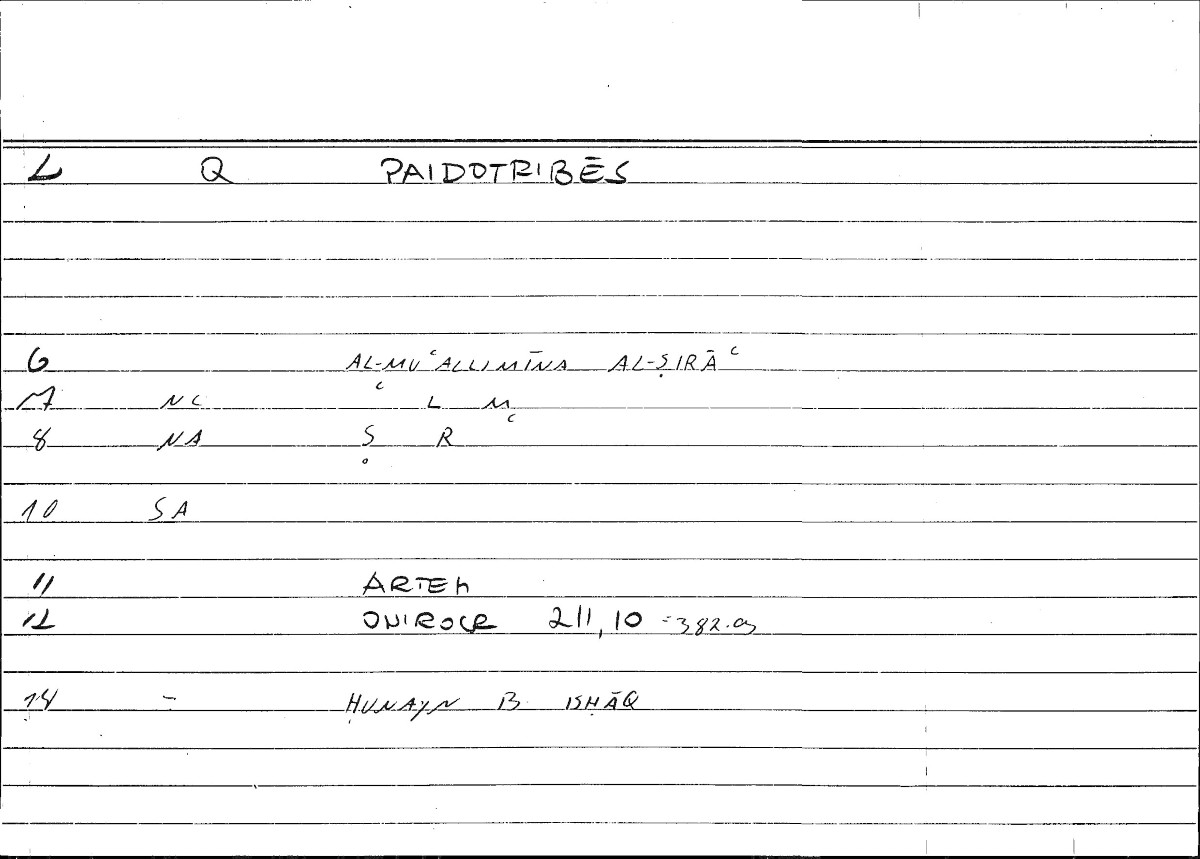 L Q PAIDOTRIBĒS
6 AL-MUʿALLIMĪNA AL-ṢIRĀʿ
7 NC ʿ L M
8 NA Ṣ R ʿ
10 SA
11 ARTEM
12 ONIROCR 211,10 =382.9
14 - ḤUNAYN B ISḤĀQ